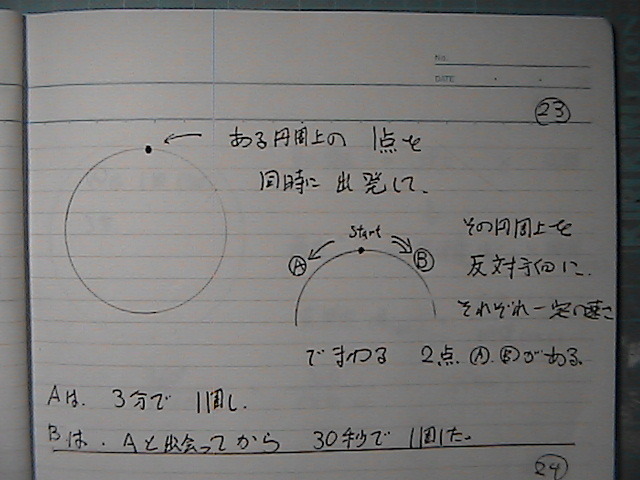 NO.
DATE
23
ある円周上の 1点を
同時に 出発して、
Start
A
B
その円周上を
反対方向に、
それぞれ一定の速さ
でまわる 2点 A、Bがある。
Aは、3分で 1周し、
Bは、Aと出会ってから 30秒で 1周した。
24